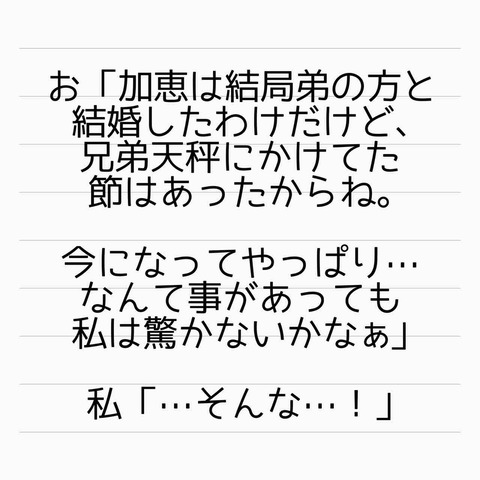 お「加恵は結局弟の方と
結婚したわけだけど、
兄弟天秤にかけてた
節はあったからね。
今になってやっぱり…
なんて事があっても
私は驚かないかなぁ」
私「…そんな…！」